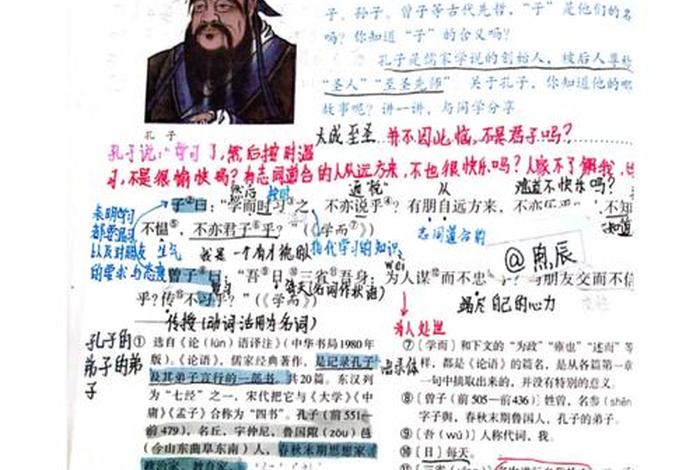 子、孙子、曾子等古代先哲，“子”是他们的名
吗？你知道“子”的含义吗？
孔子是儒家学说的创始人，被后人尊
“圣人”“至圣先师”关于孔子，你知道他的哪
故事呢？讲一讲，与同学分享
孔 子
大成至圣
并不因此恼，不是君子吗？
孔子说：“学习了，然后按时温
习，不是很愉快吗？有志同道合的人从远方来，不也很快乐吗？人家不了解我，
然后 按时
通“悦”
从
难道不快乐吗？
子②曰：“学而时习③之，不亦说④乎？有朋自远方来，不亦乐乎
不知
表明学习
都要温习
以及对朋友
的要求与态度
不愠，不亦君子乎？”（《学而》）
生气
我是一个有才能
指代学习的知识
志同道合的
@ 周辰
曾子曰：“吾日三省吾身：为人谋⑫而不忠乎？与朋友交而不信
wèi
每天（名词作状语）
竭尽自己的心力
乎？传不习乎？”（《学而》）
传授（动词活用为名词）
为人处理
孔子的
弟子的弟
子
① 选自《论（lún）语译注》（中华书局1980年
版）。《论语》，儒家经典著作，是记录孔子
及其弟子言行的一部书，共20篇。东汉列
语录体
为“七经”之一，宋代把它与《大学》《中
庸》《孟子》合称为“四书”。孔子（前551—
前479），名丘，字仲尼，鲁国陬（zōu）邑
（今山东曲阜东南）人，春秋末期思想家、
政治家、教育家，
⑦〔学而〕和下文的“为政”“雍也”“述而”等
样，都是《论语》的篇名，是从各篇第一章
一句中摘取出来的，并没有特别的意义。
⑧〔曾子（前505—前436）〕姓曾，名参（shēn
字子舆，春秋末期鲁国人，孔子的弟子。
⑨〔吾（wú）〕人称代词，我。
⑩〔日〕每天。